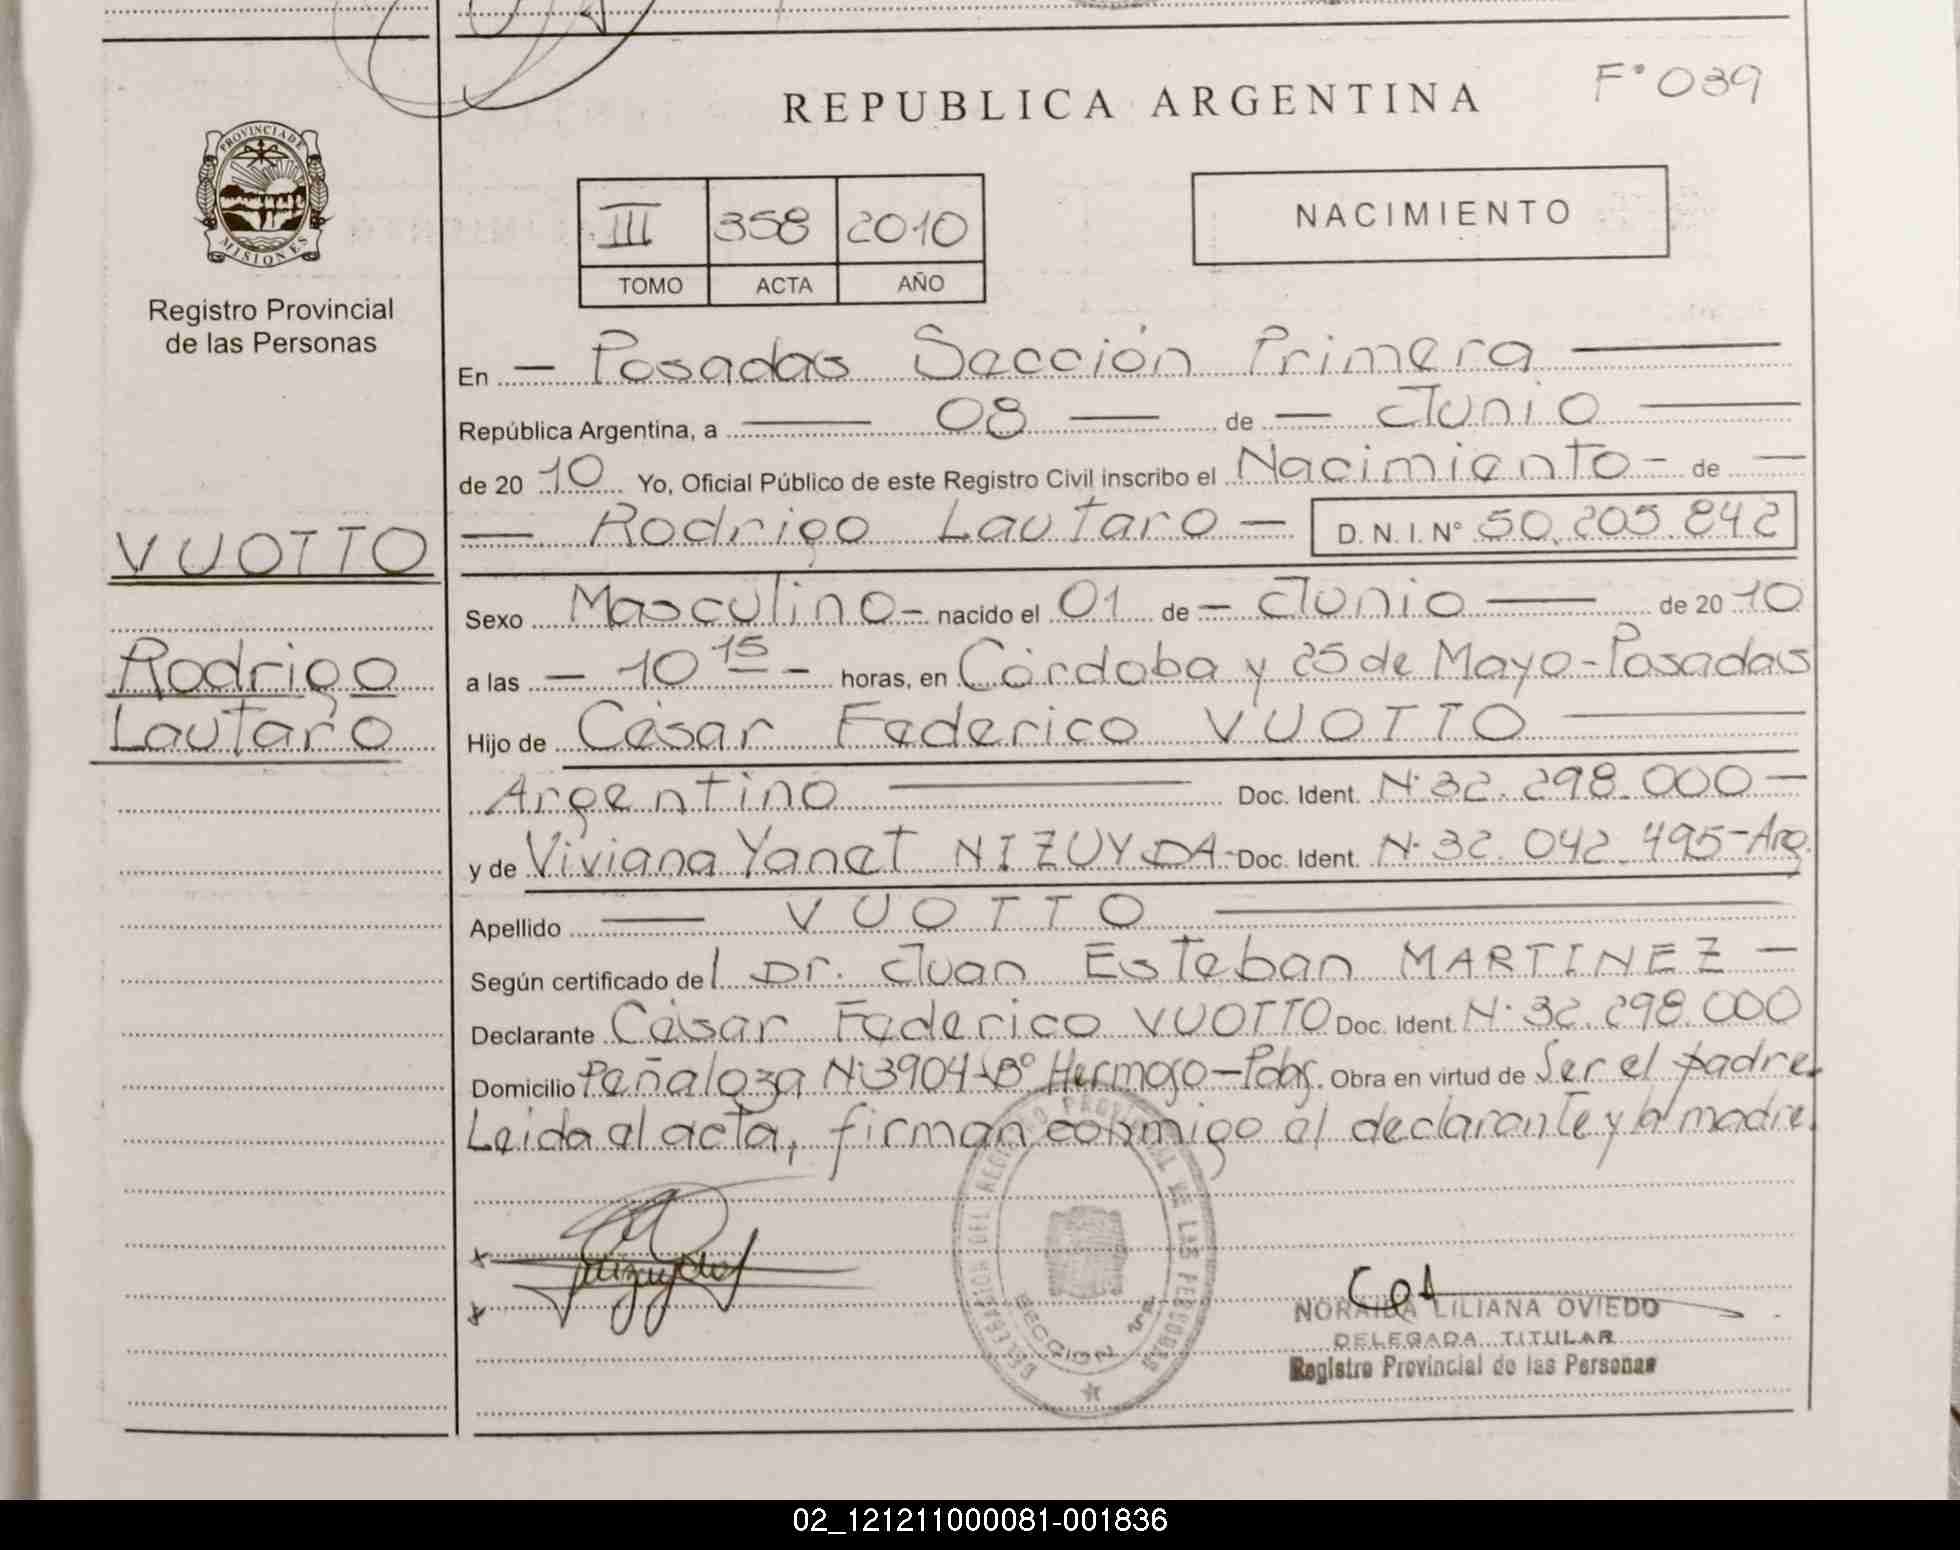 REPUBLICA ARGENTINA
F° 039
PROVINCIA DE
MISIONES
Registro Provincial
de las Personas
III 358 2010
TOMO ACTA AÑO
NACIMIENTO
En — Posadas Sección Primera —
República Argentina, a — 08 — de — Junio —
de 2010 Yo, Oficial Público de este Registro Civil inscribo el Nacimiento - de —
— Rodrigo Lautaro — D.N.I. N° 50.205.842
VUOTTO
Rodrigo
Lautaro
Sexo Masculino - nacido el 01 de — Junio — de 2010
a las — 10 15 - horas, en Córdoba y 25 de Mayo - Posadas
Hijo de César Federico VUOTTO —
Argentino — Doc. Ident. N° 32.298.000 —
y de Viviana Yanet NIZUYDA - Doc. Ident. N° 32.042.495 - Arg.
Apellido — VUOTTO —
Según certificado del Dr. Juan Esteban MARTINEZ —
Declarante César Federico VUOTTO Doc. Ident. N° 32.298.000
Domicilio Peñaloza N° 3904 - B° Hermoso - Pdas. Obra en virtud de Ser el padre.
Leida el acta, firman conmigo el declarante y la madre.
DELEGACION DEL REGISTRO PROVINCIAL DE LAS PERSONAS
SECCION 1ra
NORAIDA LILIANA OVIEDO
DELEGADA TITULAR
Registro Provincial de las Personas
02_121211000081-001836